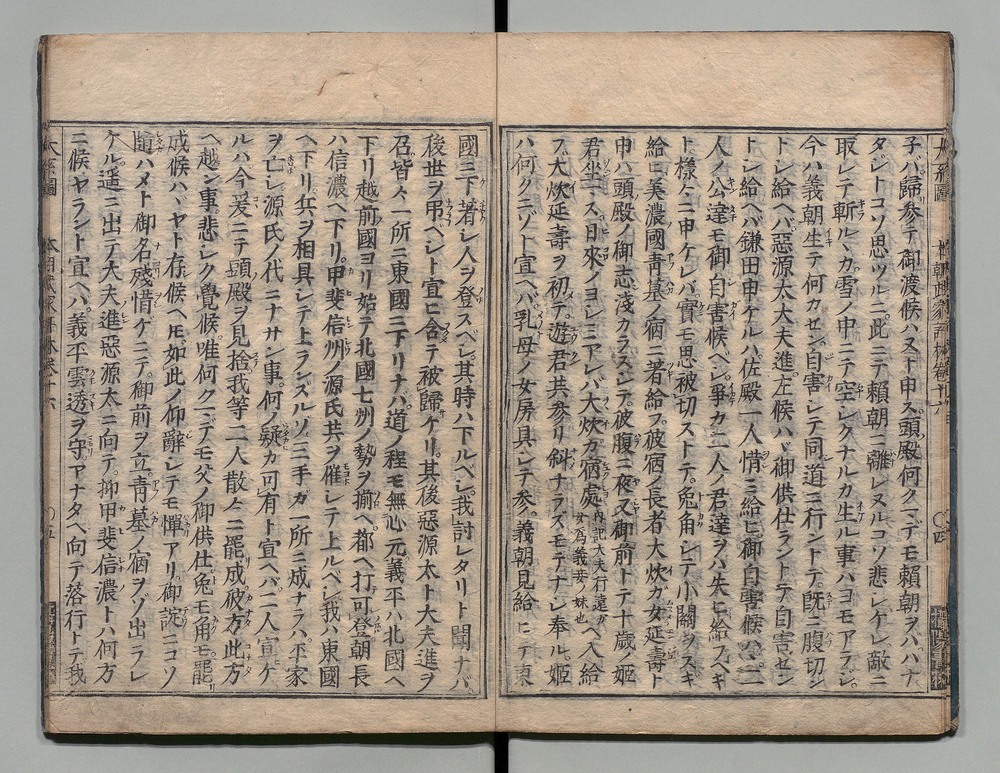 子バ歸参テ御渡候ハヌト申ス頭殿何クマデモ頼朝ヲバハナ
タジトコソ思ツルニ此ニテ頼朝ニ離レヌルコソ悲シケレ敵ニ
取レテ斬ルヽカ雪ノ中ニテ空シクナルカ生ル事ハヨモアラジ
今ハ義朝生テ何カセン自害シテ同道ニ行ントテ既ニ腹切ン
トシ給ヘバ惡源太大夫進左候ハヾ御供仕ラントテ自害セン
トシ給ヘバ鎌田申ケルハ佐殿一人惜ミ給ヒ御自害候ハヾ二
人ノ公達モ御自害候ヘシ爭カ二人ノ君達ヲハ失ヒ給フベキ
ト様々ニ申ケレバ實モ思被切ストテ兔角シテ小關ヲスギ
給ヒ美濃國青墓ノ宿ニ著給フ彼宿ノ長者大炊カ女延壽ト
申ハ頭殿ノ御志淺カラズシテ彼腹ニ夜叉御前トテ十歳ノ姫
君坐ス日來ノヨシミアレバ大炊カ宿處内記大夫行遠カ女爲義妾妹也ヘ入給
フ大炊延壽ヲ初テ遊君共参リ斜ナラズモテナシ奉ル姫
ハ何クニゾト宣ヘバ乳母ノ女房具シテ参義朝見給ヒテ東
國ニ下著シ人ヲ登スベシ其時ハ下ルベシ我討レタリト聞ナバ
後世ヲ弔ヘシト宣ヒ含テ被歸ケリ其後惡源太ト大夫進ヲ
召皆々一所ニ東國ニ下リナバ道ノ程モ無心元義平ハ北國ヘ
下リ越前國ヨリ始テ北國七州ノ勢ヲ揃ヘ都ヘ打可登朝長
ハ信濃ヘ下リ甲斐信州ノ源氏共ヲ催シテ上ルベシ我ハ東國
ヘ下リ兵ヲ相具シテ上ランズルゾ三手カ一所ニ成ナラハ平家
ヲ亡シ源氏ノ代ニナサン事何ノ疑カ可有ト宣ヘバ二人宣ケ
ルハ今爰ニテ頭殿ヲ見捨我等二人散々ニ罷成彼方此方
ヘ越ン事悲シク覺候唯何クニテモ父ノ御供仕兔モ角モ罷
成候ハヾヤト存候ヘ𪜈如此ノ仰辭シテモ憚アリ御諚ニコソ
隨ハメト御名殘惜ケニテ御前ヲ立青墓ノ宿ヲゾ出ラレ
ケル遥ニ出テ大夫進惡源太ニ向テ抑甲斐信濃トハ何方
ニ候ヤラント宣ヘハ義平雲透ヲ守アナタヘ向テ落行トテ我